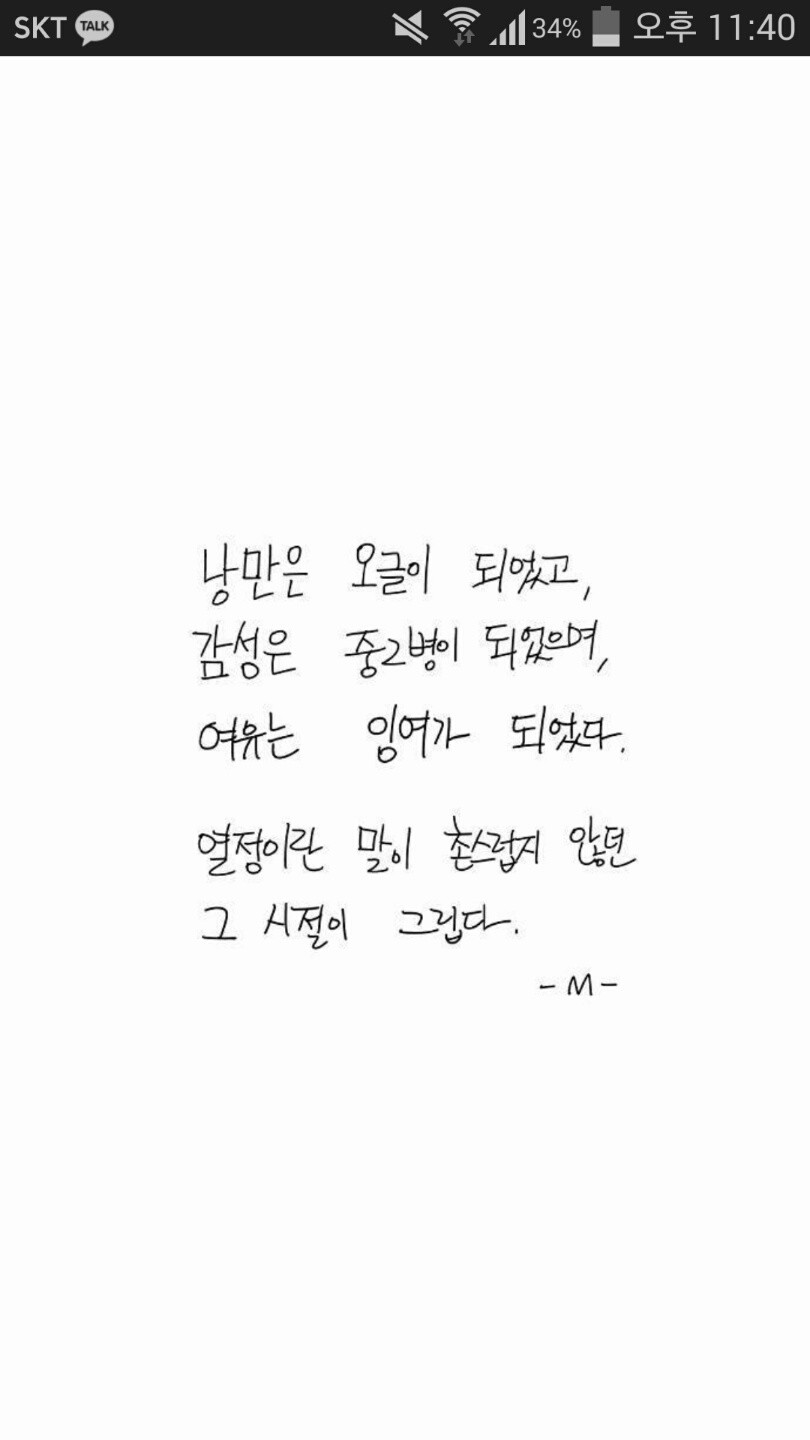 SKT TALK 34% 오후 11:40
낭만은 오글이 되었고,
감성은 중2병이 되었으며,
여유는 잉여가 되었다.
열정이란 말이 촌스럽지 않던
그 시절이 그립다.
-M-